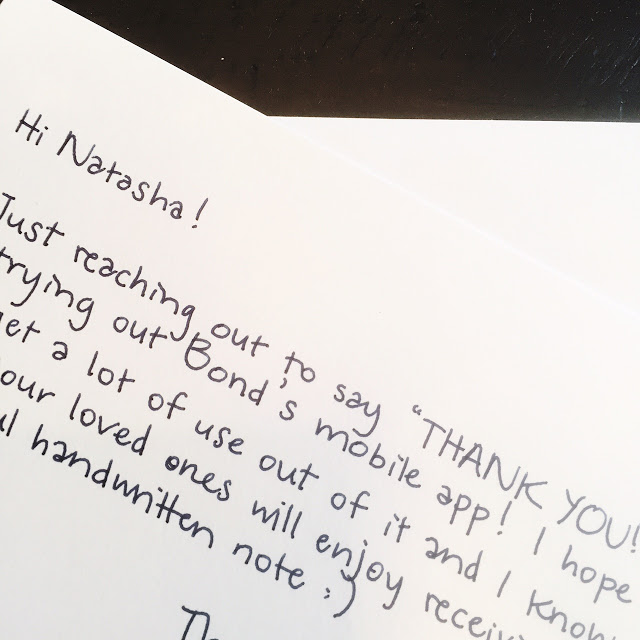 Hi Natasha!
Just reaching out to say "THANK YOU!
trying out Bond's mobile app! I hope
a lot of use out of it and I know
loved ones will enjoy
handwritten note :)